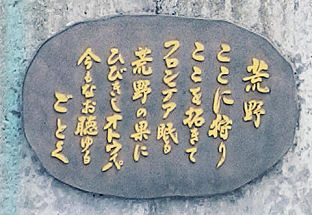 荒野
ここに狩り
ここを拓きて
フロンテア眠る
荒野の果に
ひびきしオトウパ
今もなお聴ゆる
ごとく